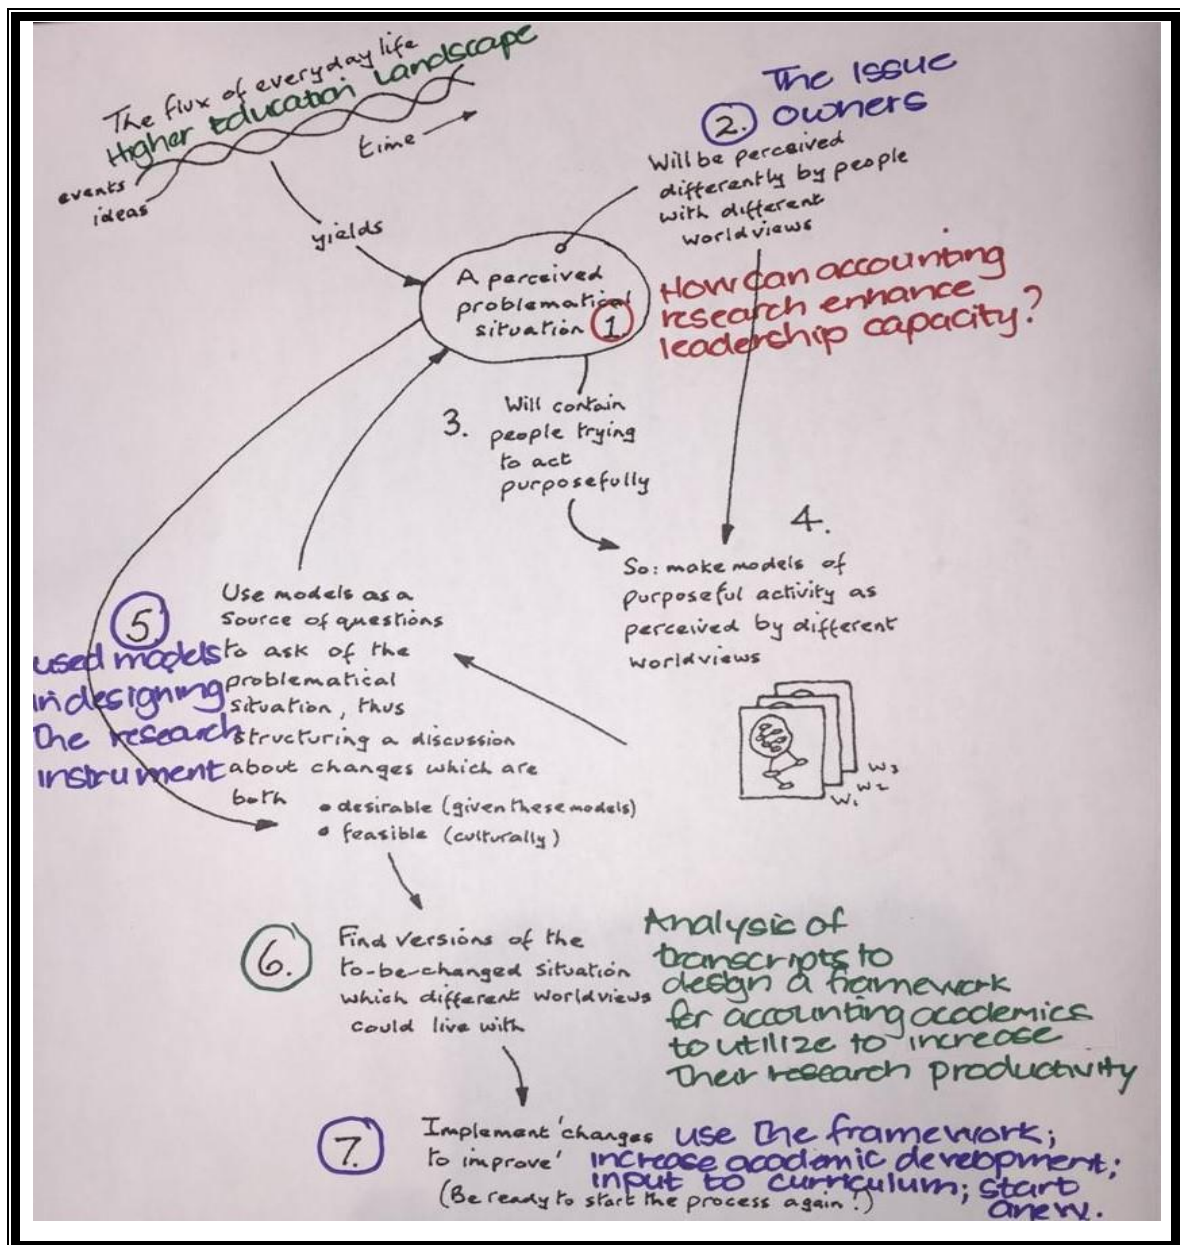 The flux of everyday life
Higher Education Landscape
events
ideas
time
yields
The Issue
2. owners
Will be perceived
differently by people
with different
worldviews
A perceived
problematical
situation 1
How can accounting
research enhance
leadership capacity?
3. Will contain
people trying
to act
purposefully
4.
So: make models of
purposeful activity as
perceived by different
worldviews
W1
W2
W3
5
used models
in designing
the research
instrument
Use models as a
source of questions
to ask of the
problematical
situation, thus
structuring a discussion
about changes which are
both
• desirable (given these models)
• feasible (culturally)
6.
Find versions of the
to-be-changed situation
which different worldviews
could live with
Analysis of
transcripts to
design a framework
for accounting academics
to utilize to increase
their research productivity
7.
Implement 'changes
to improve'
(Be ready to start the process again!)
use the framework;
increase academic development;
input to curriculum; start
anew.